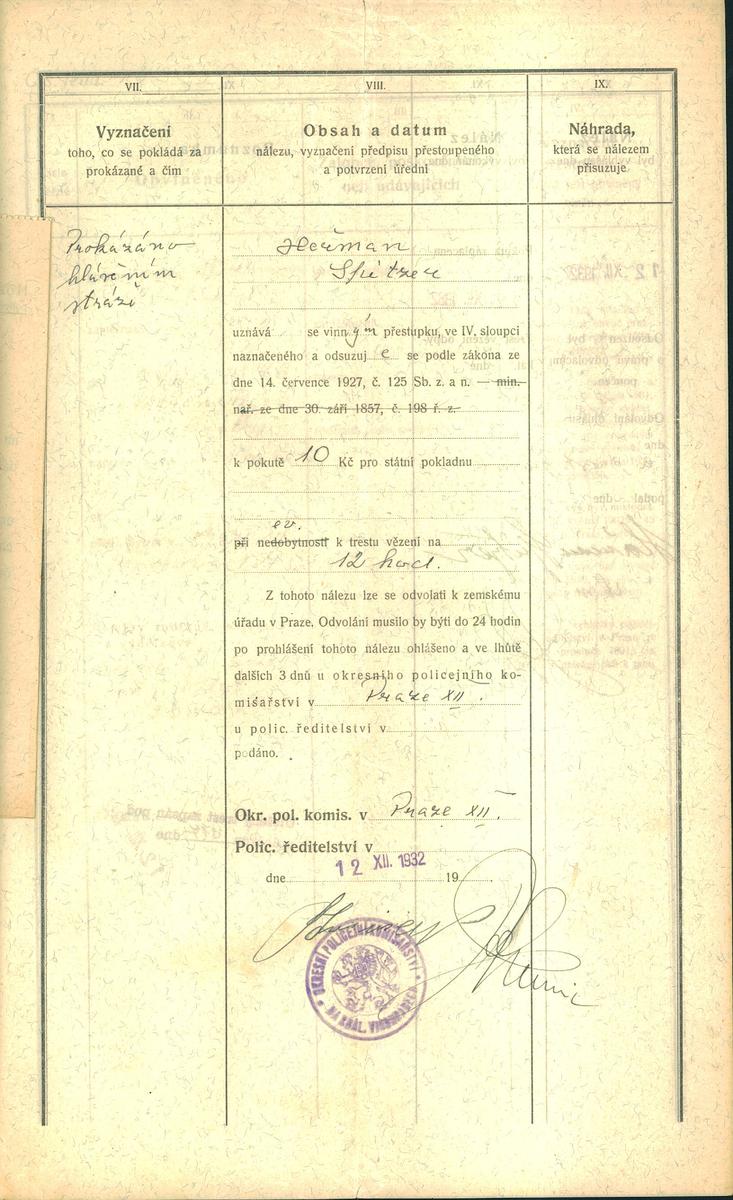 VII.
Vyznačení
toho, co se pokládá za
prokázané a čím
VIII.
Obsah a datum
nálezu, vyznačení předpisu přestoupeného
a potvrzení úřední
IX.
Náhrada,
která se nálezem
přisuzuje
Prokázáno
hlášením
stráže
Heřman
Spitzer
uznává se vinným přestupku, ve IV. sloupci
naznačeného a odsuzuje se podle zákona ze
dne 14. července 1927, č. 125 Sb. z. a n. — min.
nař. ze dne 30. září 1857, č. 198 ř. z.
k pokutě 10 Kč pro státní pokladnu
ev.
při nedobytnosti k trestu vězení na
12 hod.
Z tohoto nálezu lze se odvolati k zemskému
úřadu v Praze. Odvolání musilo by býti do 24 hodin
po prohlášení tohoto nálezu ohlášeno a ve lhůtě
dalších 3 dnů u okresního policejního ko-
misařství v Praze XII.
u polic. ředitelství v
podáno.
Okr. pol. komis. v Praze XII.
Polic. ředitelství v
dne 12 XII. 1932 19
OKRESNÍ POLICEJNÍ KOMISAŘSTVÍ
NA KRÁL. VINOHRADECH